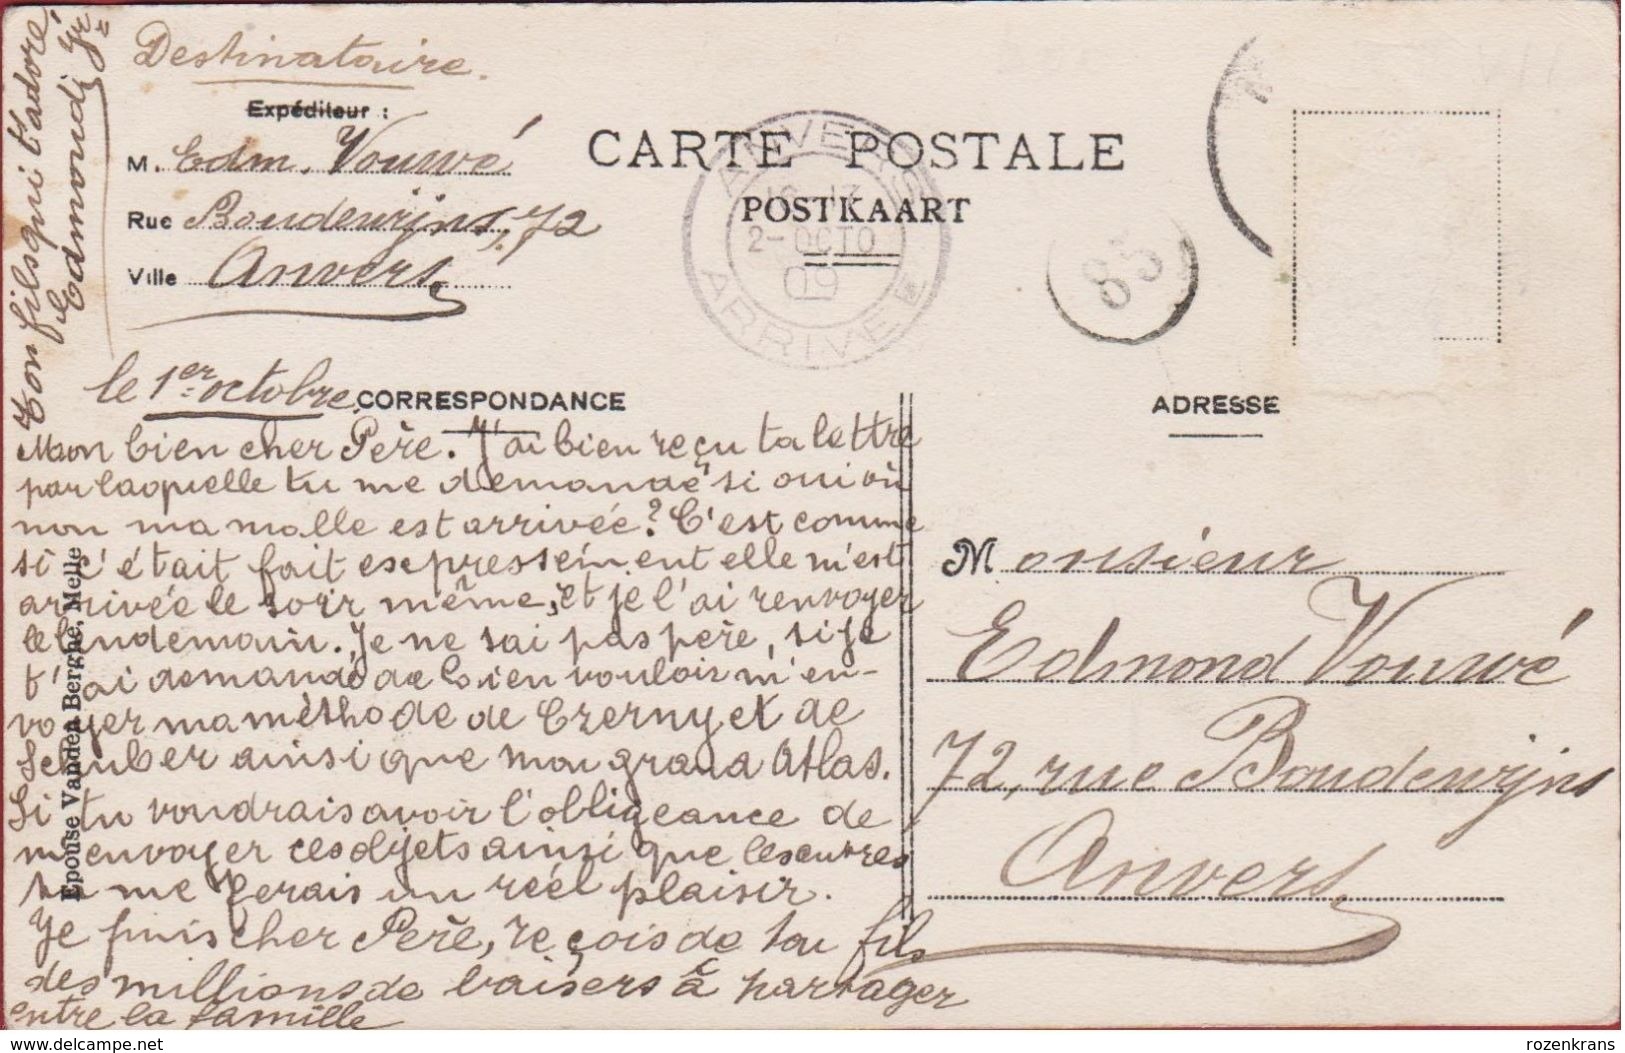 Destinataire.
Expéditeur :
M. Edm. Vouwé
Rue Boudewijns, 72
Ville Anvers
CARTE POSTALE
POSTKAART
ANVERS
2-OCTO
09
ARRIVEE
85
le 1er octobre
CORRESPONDANCE
ADRESSE
Mon bien cher Père. J'ai bien reçu ta lettre
par laquelle tu me demande si oui ou
non ma malle est arrivée? C'est comme
si c'était fait expressément elle m'est
arrivée le soir même, et je l'ai renvoyer
le lendemain. Je ne sai pas père, si je
t'ai demandé de bien vouloir m'en-
voyer ma méthode de Czerny et de
ainsi que mon grand Atlas.
Si tu voudrais avoir l'obligeance de
m'envoyer ces objets ainsi que les autres
tu me ferais un réel plaisir.
Je finis cher Père, reçois de ton fils
des millions de baisers à partager
entre la famille
Ton fils qui t'adore
Edmond Jr
Epouse Vanden Berghe, Melle
Monsieur
Edmond Vouwé
72, rue Boudewijns
Anvers
delcampe.net
rozenkrans